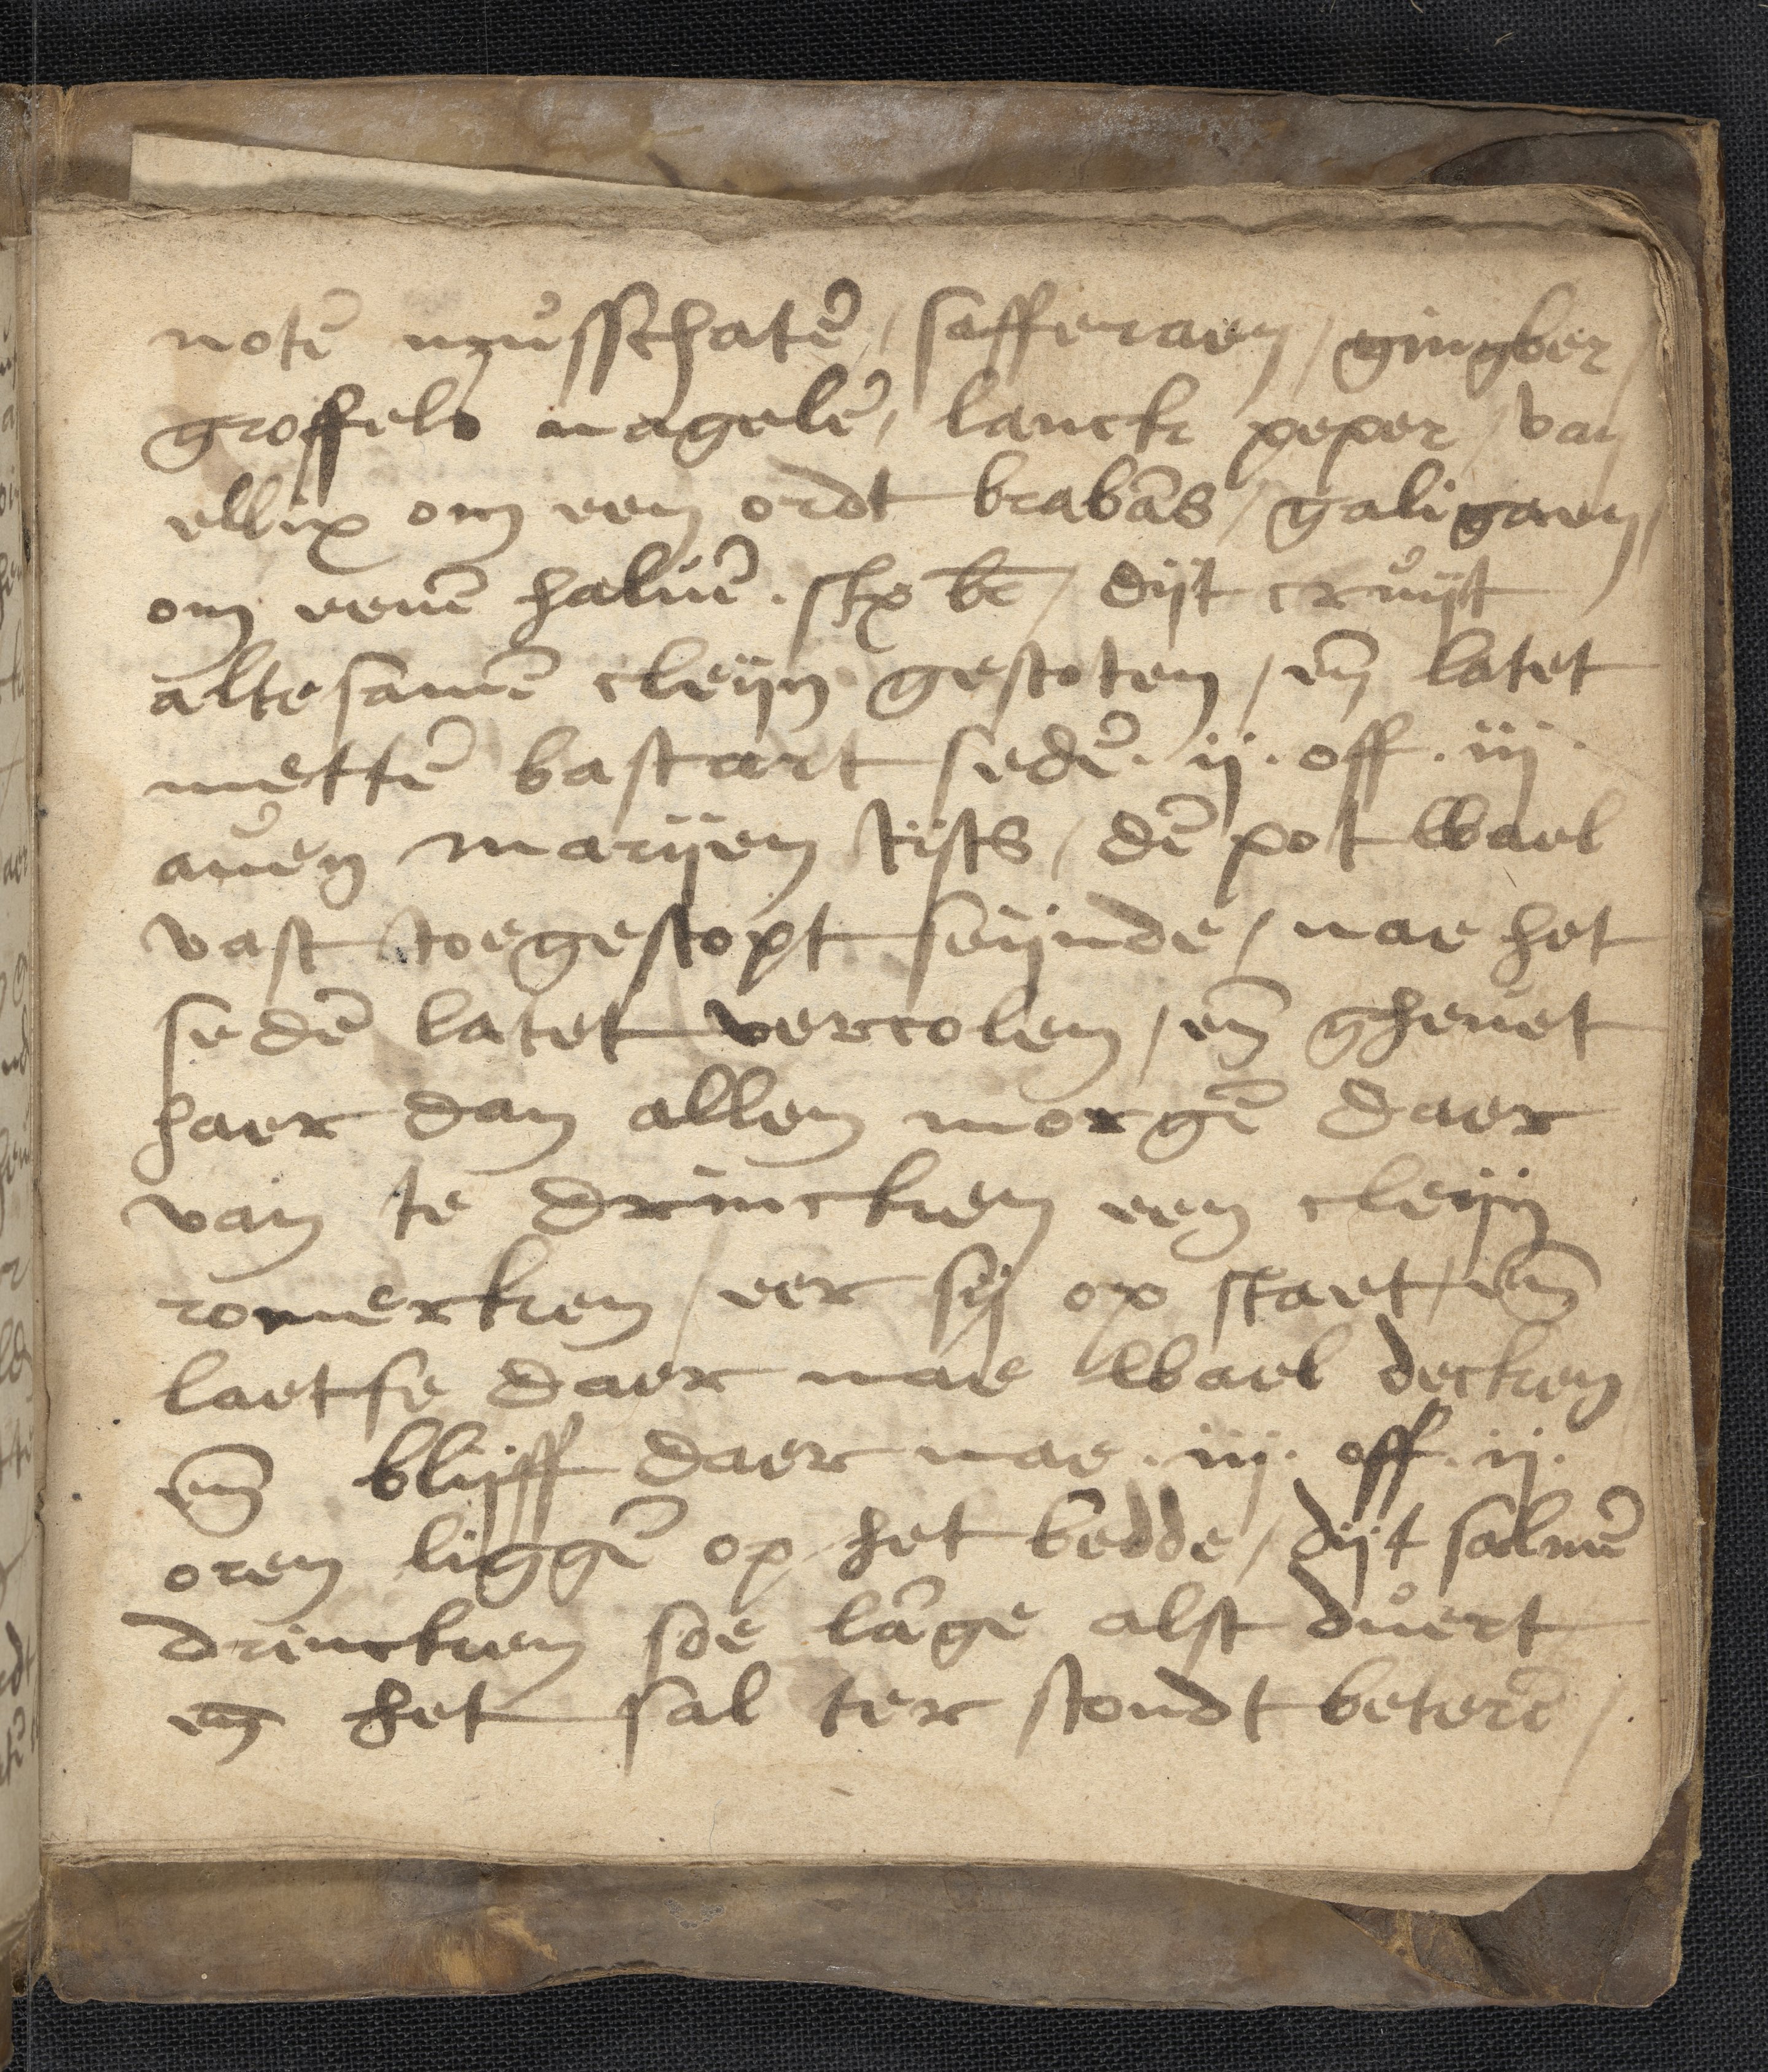 notē můsschatē / safferaen / gingber /
groffels nagelē / lanck peper / van
ellix om een ordt brabās / galigaen /
om eenē haluē . st͞x b̄c / dijt crůijt
altesamē cleijn gestoten / eñ latet
mettē bastart sedē . ij . off . iij .
auěn marijen tijts / dē pot wael
vast toegestopt seijnde / nae het
sedē latet vercolen / eñ gheuet
haer dan allen morgē daer
van te drincken een cleijn
romerken / eer sij op staet / eñ
laetse daer nae wael decken
eñ blijff daer nae . iij . off . ij .
oren liggē op het bedde / dijt salmē
drincken soe lāge alst důert
en het sal ter stondt beterē /